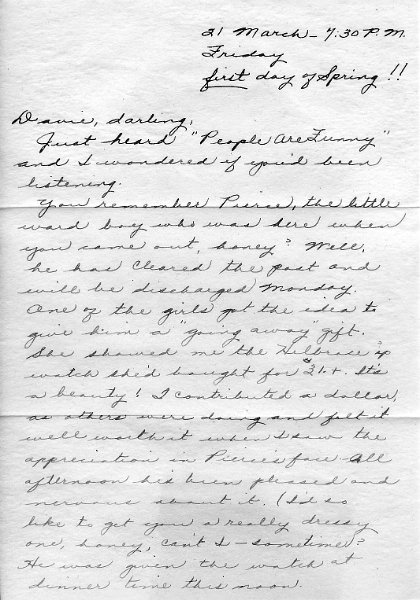 21 March - 7:30 P.M.
Friday
first day of Spring!!
Davie, darling,
Just heard "People Are Funny"
and I wondered if you'd been
listening.
You remember Pierce, the little
ward boy who was here when
you came out, honey? Well,
he has cleared the post and
will be discharged Monday.
One of the girls got the idea to
give him a "going away" gift.
She showed me the Helbrose
watch she'd bought for $21.+. It's
a beauty! I contributed a dollar,
as others were doing and felt it
well worth it when I saw the
appreciation in Pierce's face. All
afternoon his been pleased and
nervous about it. (I'd so
like to get you a really dressy
one, honey, can't I - sometime?
He was given the watch at
dinner time this noon.